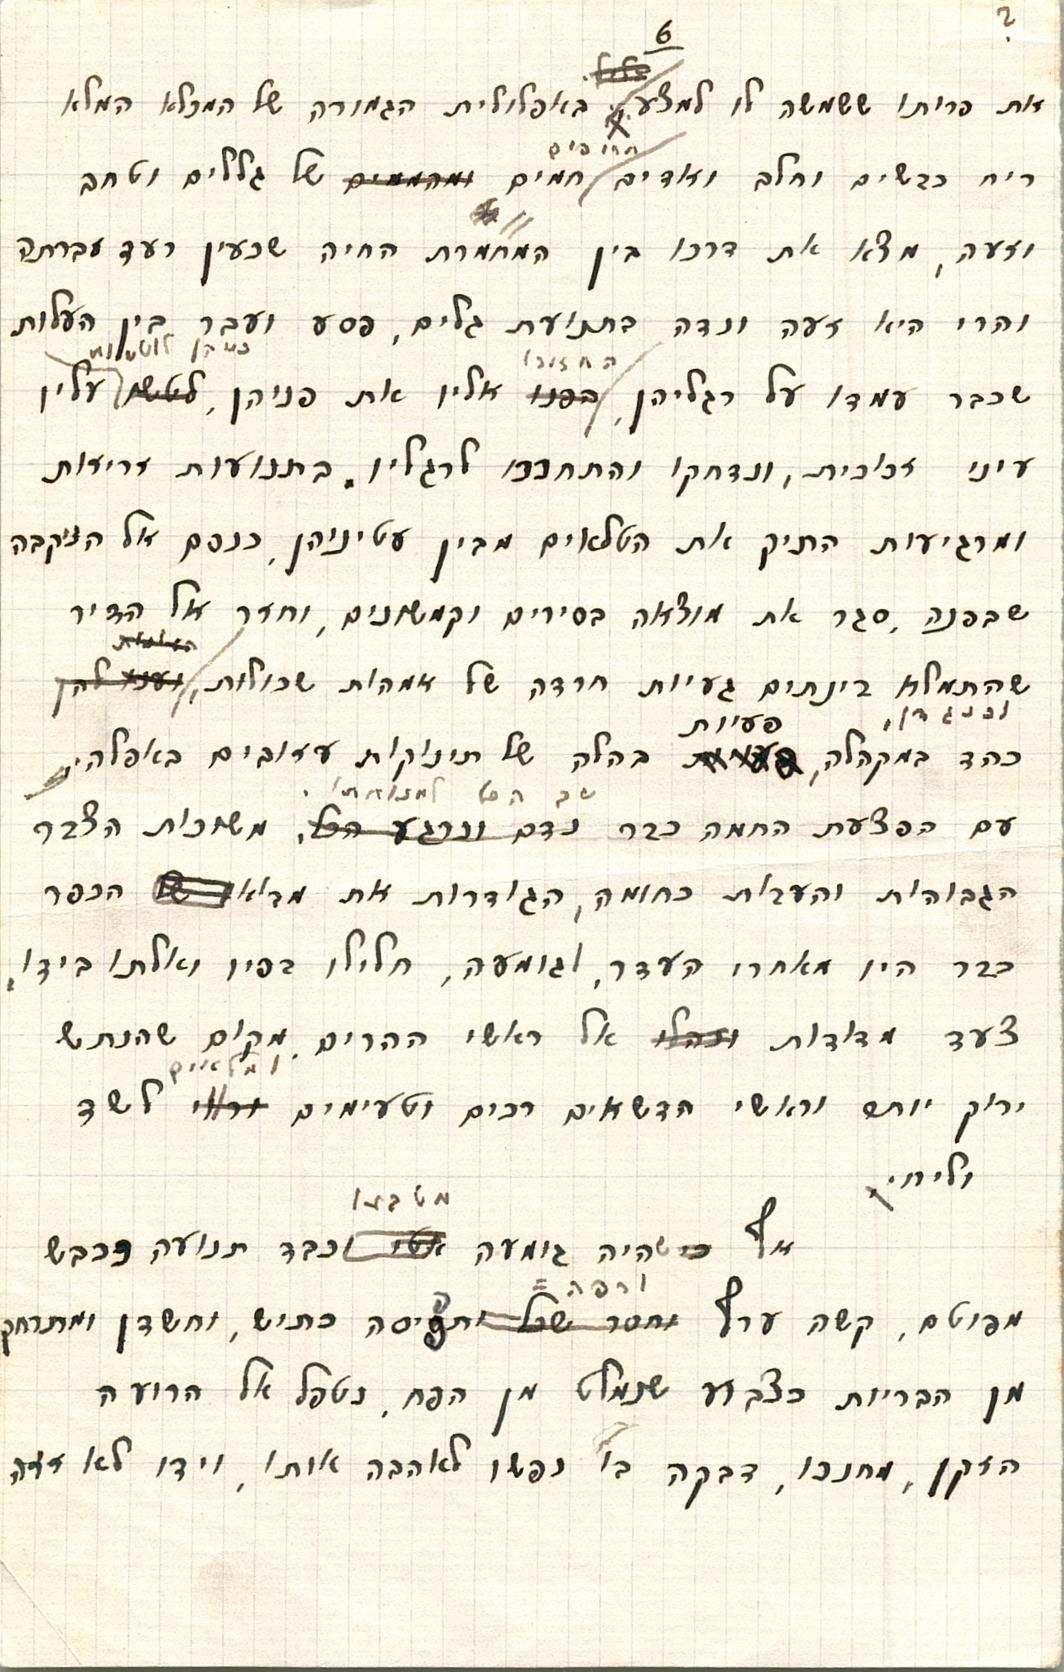 ?
6
את פריתו ששמשה לו למצע. באפלולית הגמורה של המכלא המלא
חריפים
ריח כבשים וחלב ואדים חמים ומהממים של גללים וטחב
וזעה, מצא את דרכו בין המחמרת החיה שכעין רעד עברתה
והרי היא זעה ונדה בתנועת גלים, פסע ועבר בין העלות
החזירו כשהן לוטשות
שכבר עמדו על רגליהן, הפנו אליו את פניהן, לטשו עליו
עיני זכוכית, ונדחקו והתחככו לרגליו. בתנועות זריזות
ומרגיעות התיק את הטלאים מבין עטיניהן, כנסם אל הנקבה
שבפנה, סגר את מוצאה בסירים וקמשונים, וחזר אל הדיר
שהתמלא בינתים געיות חרדה של אמהות שכולות, וענו להן
וכנגדן,
פעיות
כהד במקהלה, בהלה של תינוקות עזובים באפלה.
שב הס למנוחתו.
עם הפצעת החמה כבר נדם ונרגע הכל. משוכות הצבר
הגבוהות והעבות כחומה, הגודרות את מבואי הכפר
כבר היו מאחרי העדר, וגומעה, חלילו בפיו ואלתו בידו,
צעד מדודות ונהלו אל ראשי ההרים, מקום שהנתש
ומלאים
ירוק יותר וראשי הדשאים רכים וטעימים ורווי לשד
וליחי.
מטבעו
אף כי שהיה גומעה אטי וכבד תנועה ככבש
ורפה
מפוטם, קשה ערף וחסר שכל ותפיסה כתיש, וחשדן ומתרחק
מן הבריות כצבוע שנמלט מן הפח, נטפל אל הרועה
הזקן, מחנכו, דבקה בו נפשו לאהבה אותו, וידו לא זזה